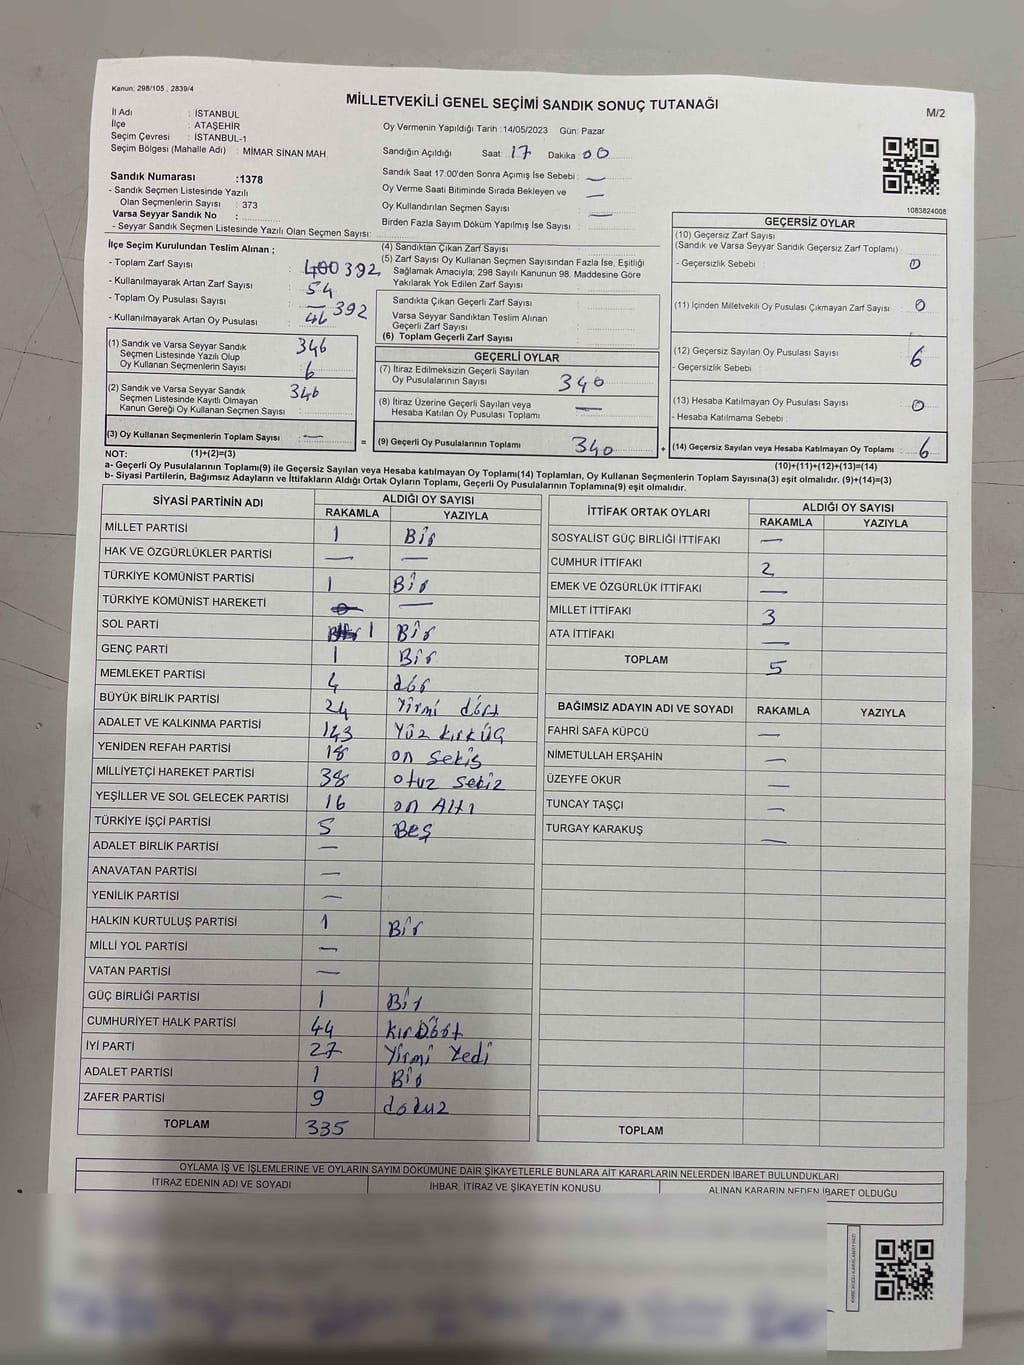 Kanun, 298/105 , 2839/4
MİLLETVEKİLİ GENEL SEÇİMİ SANDIK SONUÇ TUTANAĞI
M/2
İl Adı : İSTANBUL
İlçe : ATAŞEHİR
Seçim Çevresi : İSTANBUL-1
Seçim Bölgesi (Mahalle Adı) : MİMAR SİNAN MAH.
Sandık Numarası :1378
- Sandık Seçmen Listesinde Yazılı
Olan Seçmenlerin Sayısı : 373
Varsa Seyyar Sandık No :
- Seyyar Sandık Seçmen Listesinde Yazılı Olan Seçmen Sayısı:
Oy Vermenin Yapıldığı Tarih :14/05/2023 Gün: Pazar
Sandığın Açıldığı Saat: 17 Dakika: 00
Sandık Saat 17:00'den Sonra Açımış İse Sebebi : —
Oy Verme Saati Bitiminde Sırada Bekleyen ve —
Oy Kullandırılan Seçmen Sayısı —
Birden Fazla Sayım Döküm Yapılmış İse Sayısı :
1083824008
İlçe Seçim Kurulundan Teslim Alınan ;
- Toplam Zarf Sayısı : 400 392
- Kullanılmayarak Artan Zarf Sayısı : 54
- Toplam Oy Pusulası Sayısı : — 392
- Kullanılmayarak Artan Oy Pusulası : 46
(1) Sandık ve Varsa Seyyar Sandık 346
Seçmen Listesinde Yazılı Olup
Oy Kullanan Seçmenlerin Sayısı : 6
(2) Sandık ve Varsa Seyyar Sandık 346
Seçmen Listesinde Kayıtlı Olmayan
Kanun Gereği Oy Kullanan Seçmen Sayısı :
(3) Oy Kullanan Seçmenlerin Toplam Sayısı : —
(4) Sandıktan Çıkan Zarf Sayısı :
(5) Zarf Sayısı Oy Kullanan Seçmen Sayısından Fazla İse, Eşitliği
Sağlamak Amacıyla; 298 Sayılı Kanunun 98. Maddesine Göre
Yakılarak Yok Edilen Zarf Sayısı :
Sandıkta Çıkan Geçerli Zarf Sayısı :
Varsa Seyyar Sandıktan Teslim Alınan
Geçerli Zarf Sayısı :
(6) Toplam Geçerli Zarf Sayısı :
GEÇERLİ OYLAR
(7) İtiraz Edilmeksizin Geçerli Sayılan
Oy Pusulalarının Sayısı : 340
(8) İtiraz Üzerine Geçerli Sayılan veya
Hesaba Katılan Oy Pusulası Toplamı : —
= (9) Geçerli Oy Pusulalarının Toplamı : 340 +
GEÇERSİZ OYLAR
(10) Geçersiz Zarf Sayısı
(Sandık ve Varsa Seyyar Sandık Geçersiz Zarf Toplamı)
- Geçersizlik Sebebi : 0
(11) İçinden Milletvekili Oy Pusulası Çıkmayan Zarf Sayısı : 0
(12) Geçersiz Sayılan Oy Pusulası Sayısı : 6
- Geçersizlik Sebebi :
(13) Hesaba Katılmayan Oy Pusulası Sayısı : 0
- Hesaba Katılmama Sebebi :
(14) Geçersiz Sayılan veya Hesaba Katılmayan Oy Toplamı : 6
NOT: (1)+(2)=(3)
(10)+(11)+(12)+(13)=(14)
a- Geçerli Oy Pusulalarının Toplamı(9) ile Geçersiz Sayılan veya Hesaba katılmayan Oy Toplamı(14) Toplamları, Oy Kullanan Seçmenlerin Toplam Sayısına(3) eşit olmalıdır. (9)+(14)=(3)
b- Siyasi Partilerin, Bağımsız Adayların ve İttifakların Aldığı Ortak Oyların Toplamı, Geçerli Oy Pusulalarının Toplamına(9) eşit olmalıdır.
SİYASİ PARTİNİN ADI ALDIĞI OY SAYISI
RAKAMLA YAZIYLA
MİLLET PARTİSİ 1 Bir
HAK VE ÖZGÜRLÜKLER PARTİSİ — —
TÜRKİYE KOMÜNİST PARTİSİ 1 Bir
TÜRKİYE KOMÜNİST HAREKETİ —
SOL PARTİ 1 Bir
GENÇ PARTİ 1 Bir
MEMLEKET PARTİSİ 4 dör
BÜYÜK BİRLİK PARTİSİ 24 Yirmi dört
ADALET VE KALKINMA PARTİSİ 143 Yüz kırküç
YENİDEN REFAH PARTİSİ 18 on sekiz
MİLLİYETÇİ HAREKET PARTİSİ 38 otuz sekiz
YEŞİLLER VE SOL GELECEK PARTİSİ 16 on Altı
TÜRKİYE İŞÇİ PARTİSİ 5 Beş
ADALET BİRLİK PARTİSİ —
ANAVATAN PARTİSİ —
YENİLİK PARTİSİ —
HALKIN KURTULUŞ PARTİSİ 1 Bir
MİLLİ YOL PARTİSİ —
VATAN PARTİSİ —
GÜÇ BİRLİĞİ PARTİSİ 1 Bir
CUMHURİYET HALK PARTİSİ 44 kırDört
İYİ PARTİ 27 Yirmi Yedi
ADALET PARTİSİ 1 Bir
ZAFER PARTİSİ 9 dokuz
TOPLAM 335
İTTİFAK ORTAK OYLARI ALDIĞI OY SAYISI
RAKAMLA YAZIYLA
SOSYALİST GÜÇ BİRLİĞİ İTTİFAKI —
CUMHUR İTTİFAKI 2
EMEK VE ÖZGÜRLÜK İTTİFAKI —
MİLLET İTTİFAKI 3
ATA İTTİFAKI —
TOPLAM 5
BAĞIMSIZ ADAYIN ADI VE SOYADI RAKAMLA YAZIYLA
FAHRİ SAFA KÜPCÜ —
NİMETULLAH ERŞAHİN —
ÜZEYFE OKUR —
TUNCAY TAŞÇI —
TURGAY KARAKUŞ —
TOPLAM
OYLAMA İŞ VE İŞLEMLERİNE VE OYLARIN SAYIM DÖKÜMÜNE DAİR ŞİKAYETLERLE BUNLARA AİT KARARLARIN NELERDEN İBARET BULUNDUKLARI
İTİRAZ EDENİN ADI VE SOYADI İHBAR, İTİRAZ VE ŞİKAYETİN KONUSU ALINAN KARARIN NEDEN İBARET OLDUĞU